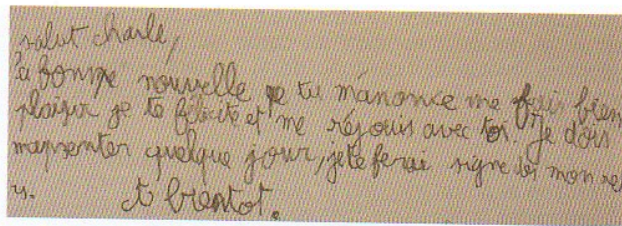 salut charle,
a bonne nouvelle que tu m'anonce me fais bien
plaisir je te félicite et me réjouis avec toi. Je dois
mapsenter quelque jour, je te ferai signe dès mon re
t bientot.